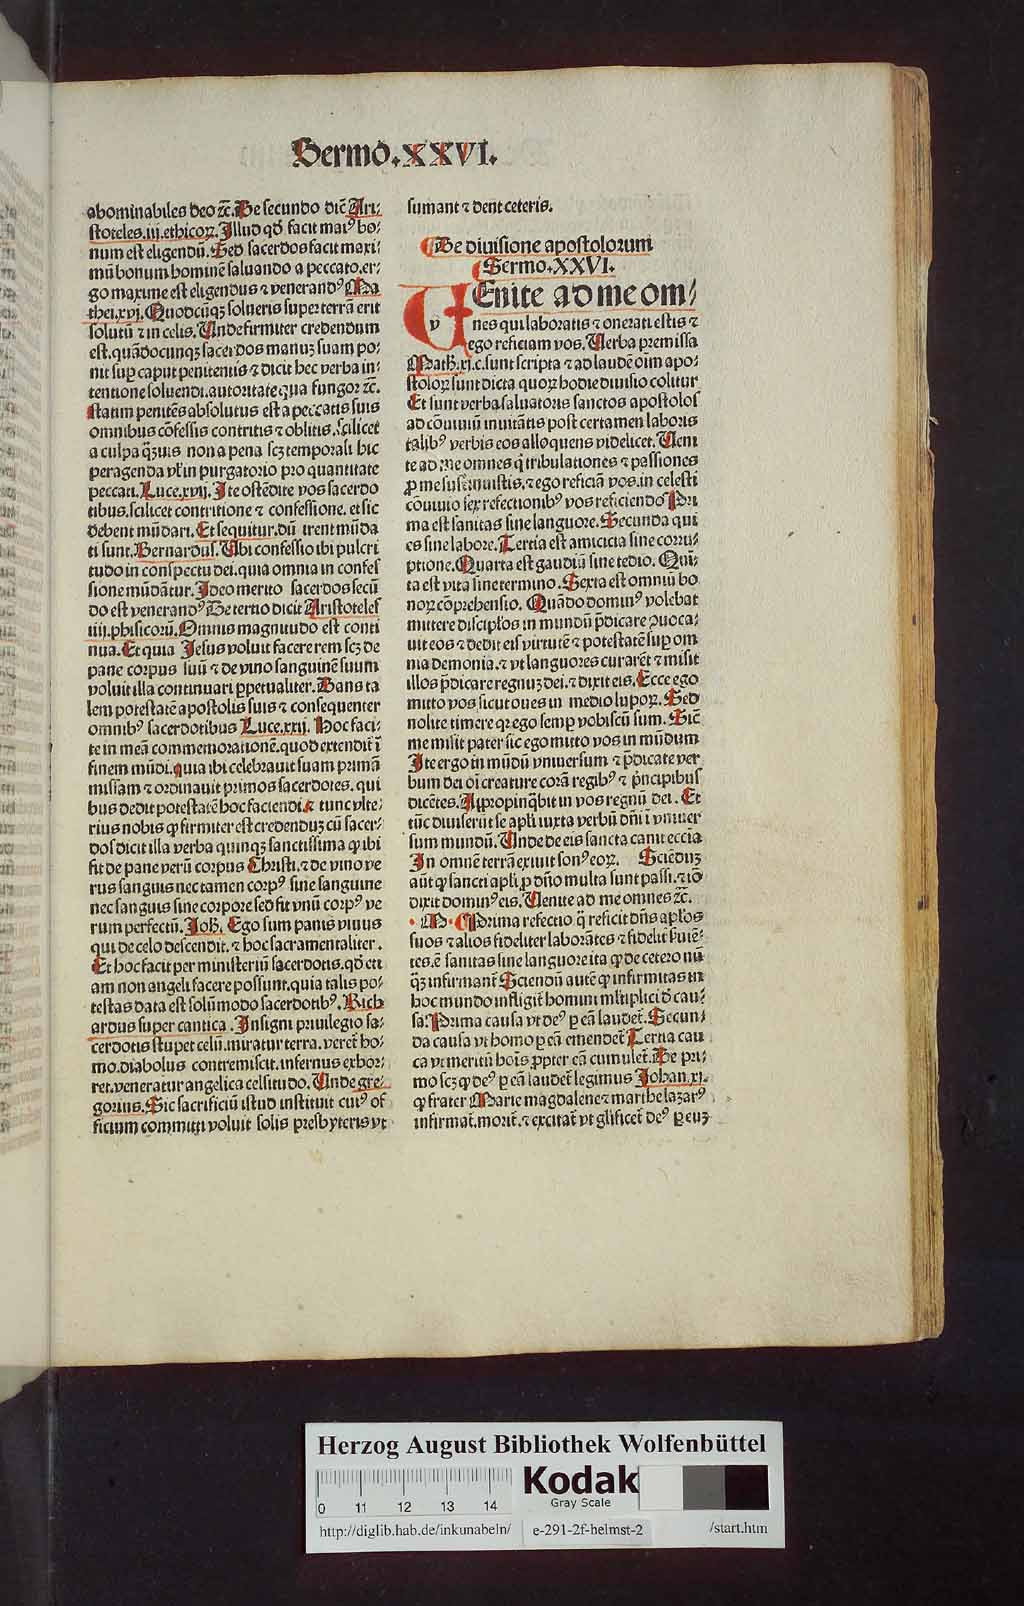 Sermo.XXVI.
abominabiles deo ⁊c̄. De secundo dic̄ Ari-
stoteles.iij.ethicoꝝ. Illud qd̓ facit maiꝰ bo-
num est eligendū. Sed sacerdos facit maxi-
mū bonum hominē saluando a peccato.er-
go maxime est eligendus ⁊ venerandꝰ Ma
thei.xvj. Quodcūqꝫ solueris super terrā erit
solutū ⁊ in celis. Unde firmiter credendum
est.quādocunqꝫ sacerdos manuꝫ suam po-
nit sup caput penitentis ⁊ dicit hec verba in-
tentione soluendi.autoritate qua fungor ⁊c̄.
statim penitēs absolutus est a peccatis suis
omnibus cōfessis contritis ⁊ oblitis. scilicet
a culpa q̄uis non a pena scꝫ temporali hic
peragenda vl̓ in purgatorio pro quantitate
peccati. Luce.xvij. Ite ostēdite vos sacerdo
tibus.scilicet contritione ⁊ confessione. et sic
debent mūdari. Et sequitur.dū irent mūda
ti sunt. Bernardus. Ubi confessio ibi pulcri
tudo in conspectu dei.quia omnia in confes
sione mūdātur. Ideo merito sacerdos secū
do est venerandꝰ De tertio dicit Aristoteles
iiij.phisicorū. Omnis magnitudo est conti
nua. Et quia Jesus voluit facere rem scꝫ de
pane corpus suū ⁊ de vino sanguinē suum
voluit illa continuari ꝑpetualiter. Dans ta
lem potestatē apostolis suis ⁊ consequenter
omnibꝰ sacerdotibus Luce.xxij. Hoc faci-
te in meā commemorationē.quod extendit̄ ī
finem mūdi.quia ibi celebrauit suam primā
missam ⁊ ordinauit primos sacerdotes. qui
bus dedit potestatē hoc faciendi.⁊ tunc vlte-
rius nobis ꝙ firmiter est credenduꝫ cū sacer-
dos dicit illa verba quinqꝫ sanctissima ꝙ ibi
fit de pane verū corpus Christi.⁊ de vino ve
rus sanguis nec tamen corpꝰ sine sanguine
nec sanguis sine corpore sed fit vnū corpꝰ ve
rum perfectū. Joh̄. Ego sum panis viuus
qui de celo descendit.⁊ hoc sacramentaliter.
Et hoc facit per ministeriū sacerdotis.qd̓ eti
am non angeli facere possunt.quia talis po-
testas data est solūmodo sacerdotibꝰ. Rich
ardus super cantica. Insigni priuilegio sa-
cerdotis stupet celū.miratur terra.veret̄ ho-
mo.diabolus contremiscit.infernus exhor-
ret.veneratur angelica celsitudo. Unde gre-
gorius. Sic sacrificiū istud instituit cuiꝰ of
ficium committi voluit solis presbyteris vt
sumant ⁊ dent ceteris.
De diuisione apostolorum
Sermo.XXVI.
VEnite ad me om-
nes qui laboratis ⁊ onerati estis ⁊
ego reficiam vos. Verba premissa
Math̄.xj.c.sunt scripta ⁊ ad laudē oīm apo-
stoloꝝ sunt dicta quoꝝ hodie diuisio colitur
Et sunt verba saluatoris sanctos apostolos
ad cōuiuiū inuitātis post certamen laboris
talibꝰ verbis eos alloquens videlicet. Ueni
te ad me omnes q̇ tribulationes ⁊ passiones
ꝓ me sustinuistis.⁊ ego reficiā vos.in celesti
cōuiuio sex refectionibꝰ vos reficiendo Pri
ma est sanitas sine languore. Secunda qui
es sine labore. Tertia est amicicia sine corru-
ptione. Quarta est gaudiū sine tedio. Quī-
ta est vita sine termino. Sexta est omniū bo
noꝝ cōprehensio. Quādo dominꝰ volebat
mittere discipl̓os in mundū p̄dicare ꝯuoca-
uit eos ⁊ dedit eis virtutē ⁊ potestatē sup om
nia demonia.⁊ vt languores curarēt ⁊ misit
illos p̄dicare regnuꝫ dei.⁊ dixit eis. Ecce ego
mitto vos sicut oues in medio lupoꝝ. Sed
nolite timere qꝛ ego semꝑ vobiscū sum. Sic̄
me misit pater sic ego mitto vos in mūdum
Ite ergo in mūdū vniuersum ⁊ p̄dicate ver
bum dei oī creature corā regibꝰ ⁊ p̓ncipibus
dicētes. Appropinq̄bit in vos regnū dei. Et
tūc diuiserūt se apl̓i iuxta verbū dn̄i ī vniuer
sum mundū. Unde de eis sancta canit eccl̓ia
In omnē terrā exiuit sonꝰ eoꝝ. Sciēduꝫ
aūt ꝙ sancti apl̓i ꝓ dn̄o multa sunt passi.⁊ iō
dixit dominꝰ eis. Venite ad me omnes ⁊c̄.
Prima refectio q̄ reficit dn̄s apl̓os
suos ⁊ alios fideliter laborātes ⁊ fidelit̓ ẜuiē-
tes.ē sanitas sine languore ita ꝙ de cetero nū
q̄ꝫ infirmant̄ Sciendū autē ꝙ infirmitas in
hoc mundo infligit̄ homini ml̓tiplici d̓ cau-
sa. Prima causa vt deꝰ ꝑ eā laudet̄. Secun-
da causa vt homo ꝑ eā emendet̄ Tertia cau
ca vt meritū hoīs ꝓpter eā cumulet̄. De pri-
mo scꝫ ꝙ deꝰ ꝑ eā laudet̄ legimus Johan.xj.
ꝙ frater Marie magdalene ⁊ marthe lazarꝰ
infirmat̄.morit̄.⁊ excitat̄ vt gl̓ificet̄ deꝰ ꝑ euꝫ
Herzog August Bibliothek Wolfenbüttel
0 11 12 13 14
Kodak
Gray Scale
http://diglib.hab.de/inkunabeln/ e-291-2f-helmst-2 /start.htm